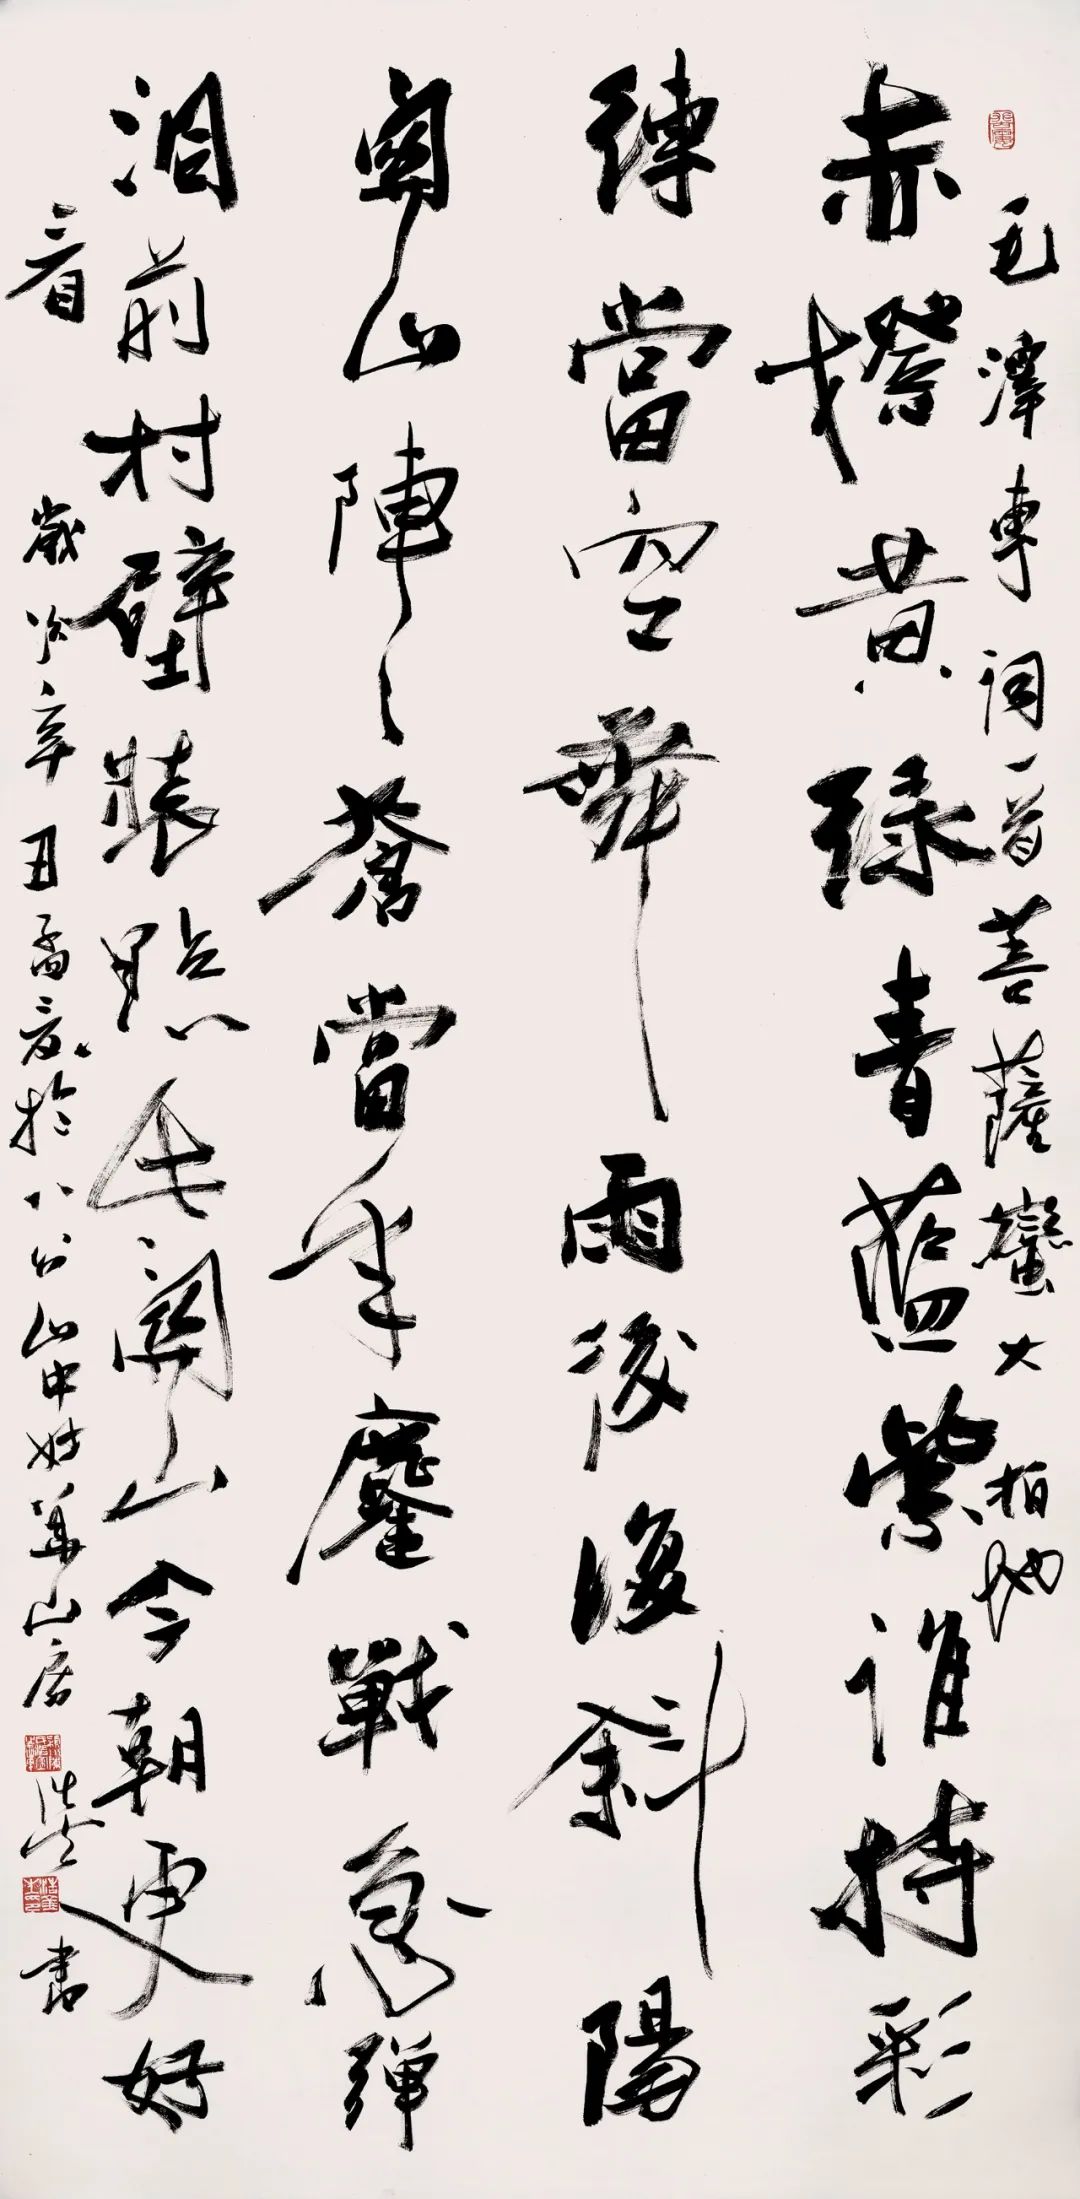 毛澤東詞一首菩薩蠻大柏地
赤橙黄緑青藍紫誰持彩
練當空舞雨後復斜陽
關山陣々蒼當年鏖戰急彈
洞前村壁裝點此關山今朝更好
看 歲次辛丑孟夏於八公山中妙華山房 書